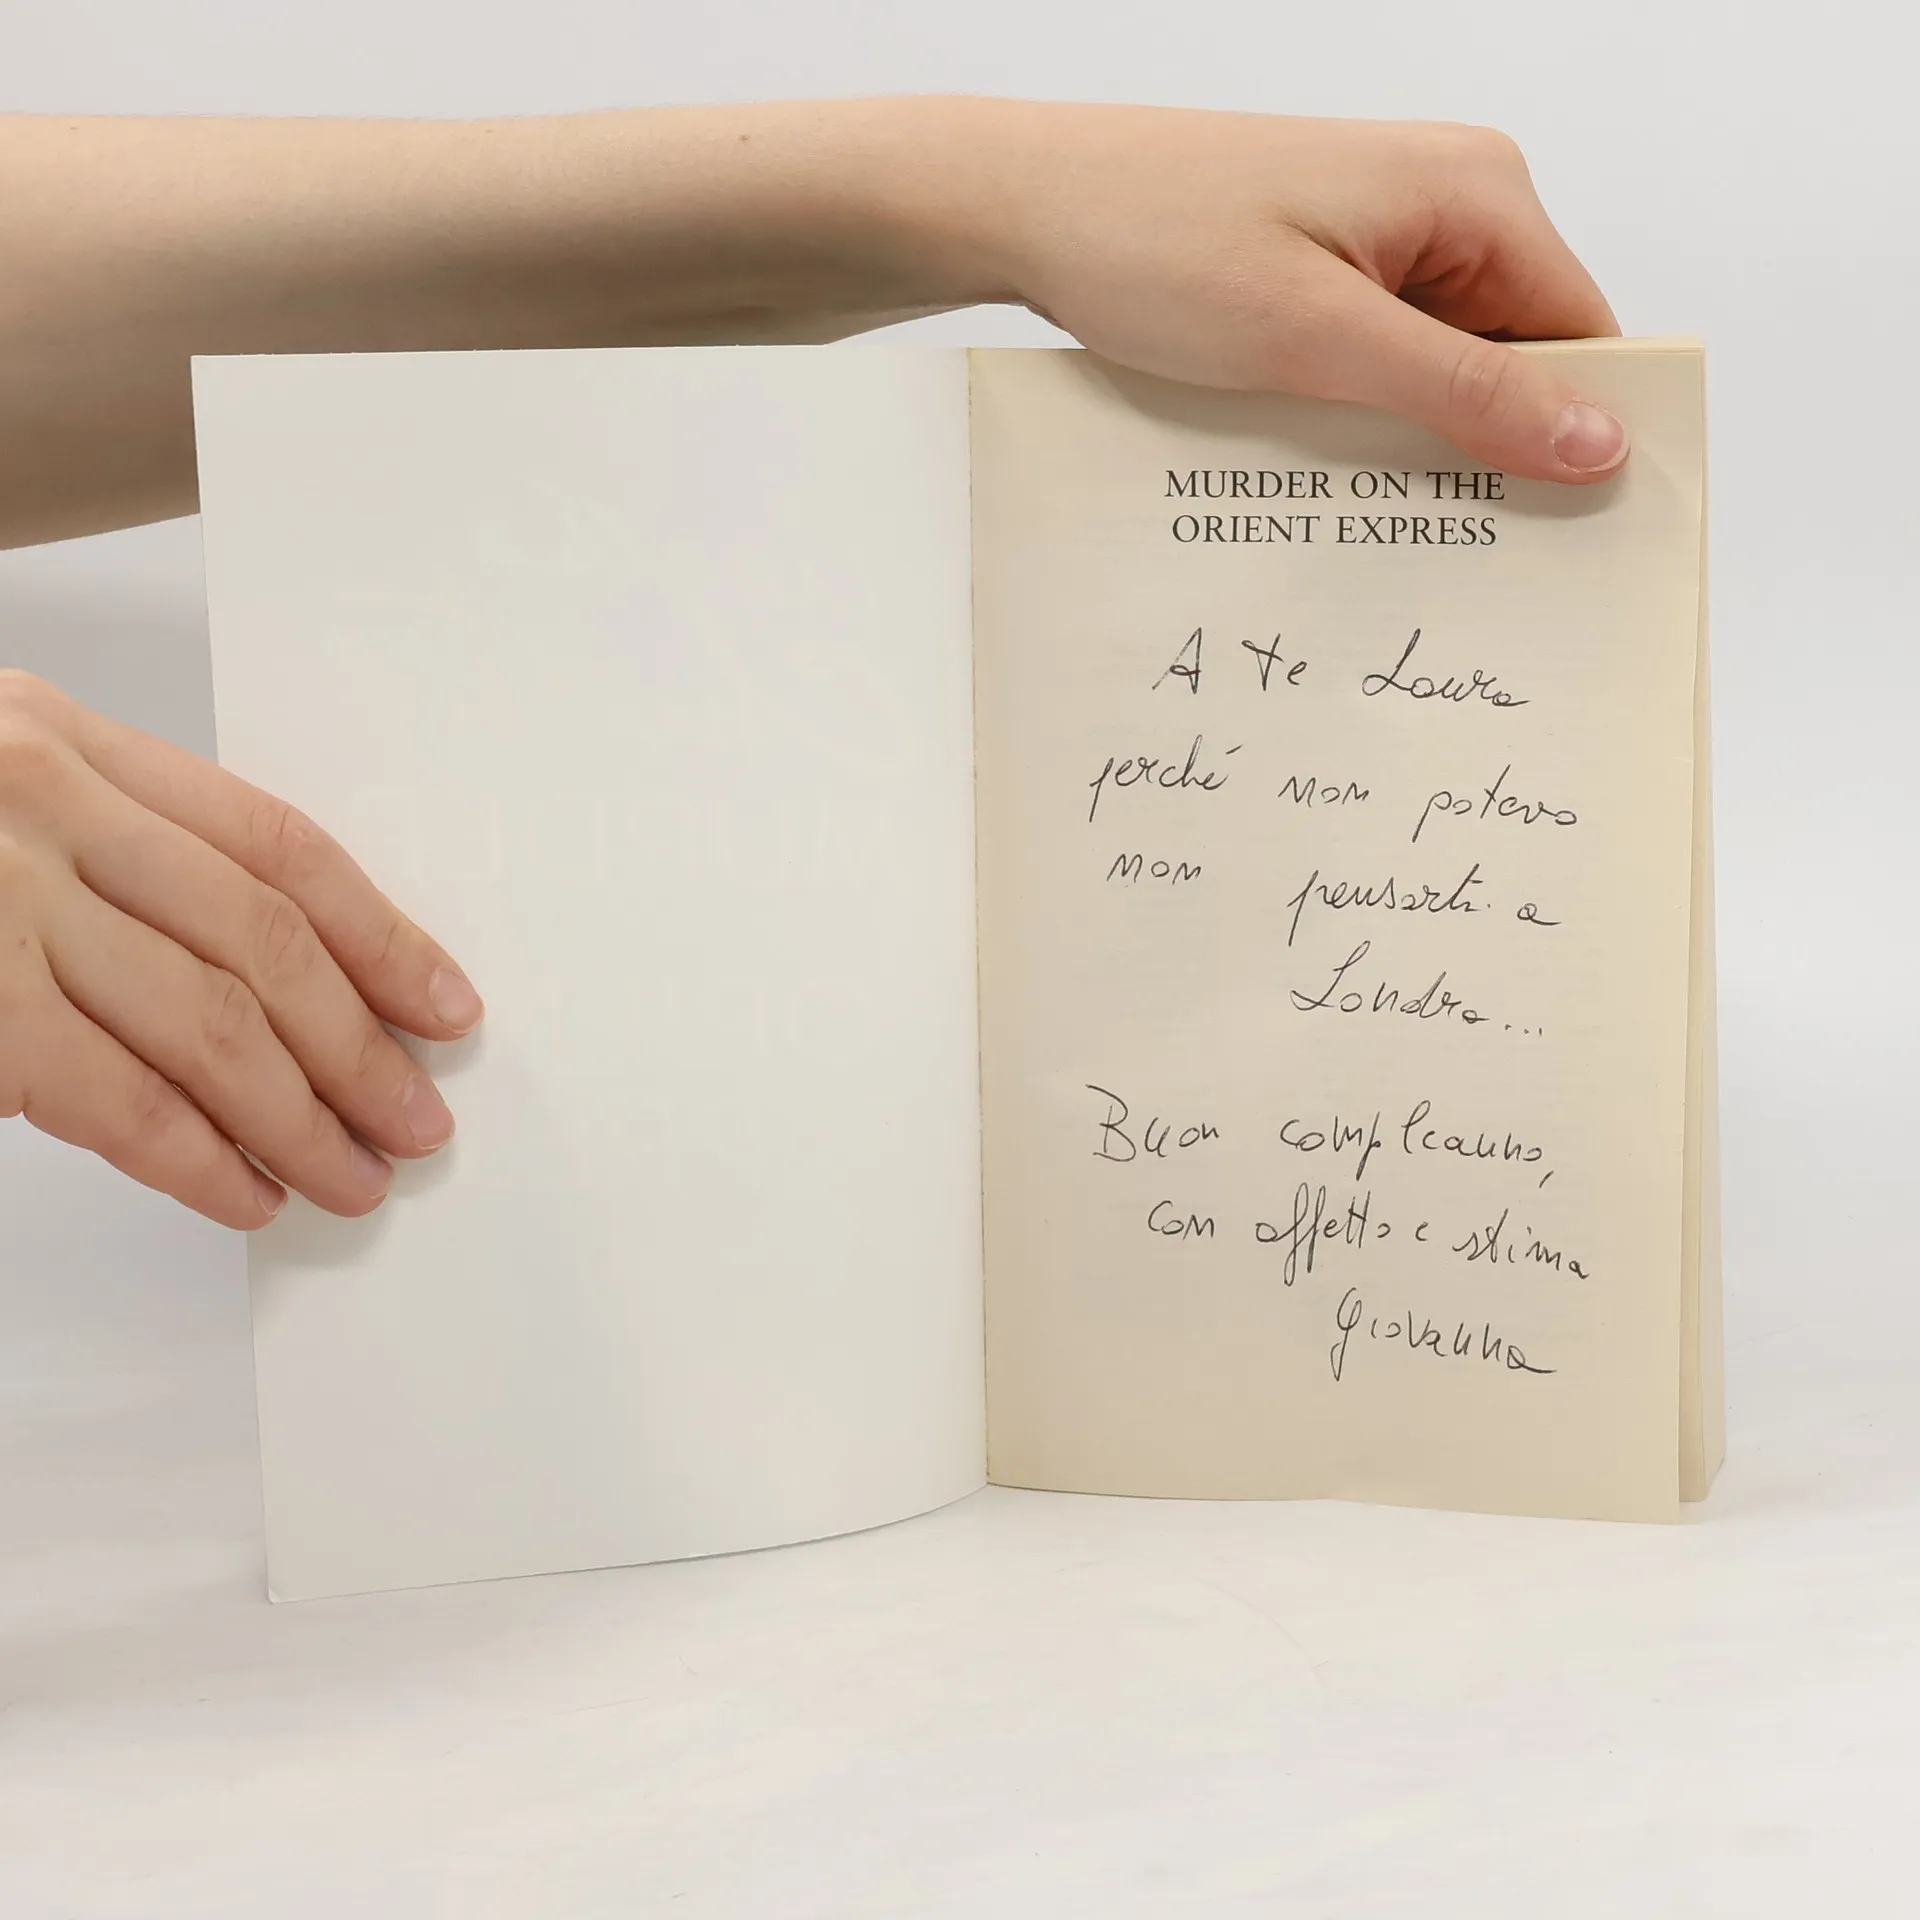 MURDER ON THE
ORIENT EXPRESS
A te Laura
perché non potevo
non pensarti a
Londra...
Buon compleanno,
con affetto e stima
Giovanna